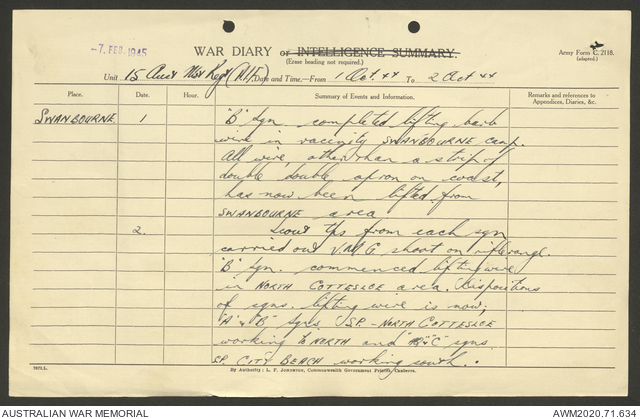 -7. FEB. 1945
WAR DIARY or INTELLIGENCE SUMMARY.
(Erase heading not required.)
Army Form C. 2118.
(adapted.)
Unit 15 Aust Mtr Regt (A.I.F.) Date and Time.—From 1 Oct. 44 To 2 Oct 44
Place. Date. Hour. Summary of Events and Information. Remarks and references to
Appendices, Diaries, &c.
SWANBOURNE. 1 "B" Sqn completed lifting barb
wire in vacinity SWANBOURNE camp.
All wire, other than a strip of
double double apron on coast,
has now been lifted from
SWANBOURNE area
2. Scout tps from each sqn
carried out VMG shoot on rifle range.
"B" Sqn. commenced lifting wire
in NORTH COTTESLOE area. Dispositions
of sqns. lifting wire is now;
"A" & "B" Sqns SP. - NORTH COTTESLOE
working to NORTH and "C" sqns.
SP. CITY BEACH working south.
By Authority: L. F. JOHNSTON, Commonwealth Government Printer, Canberra.
AUSTRALIAN WAR MEMORIAL
AWM2020.71.634